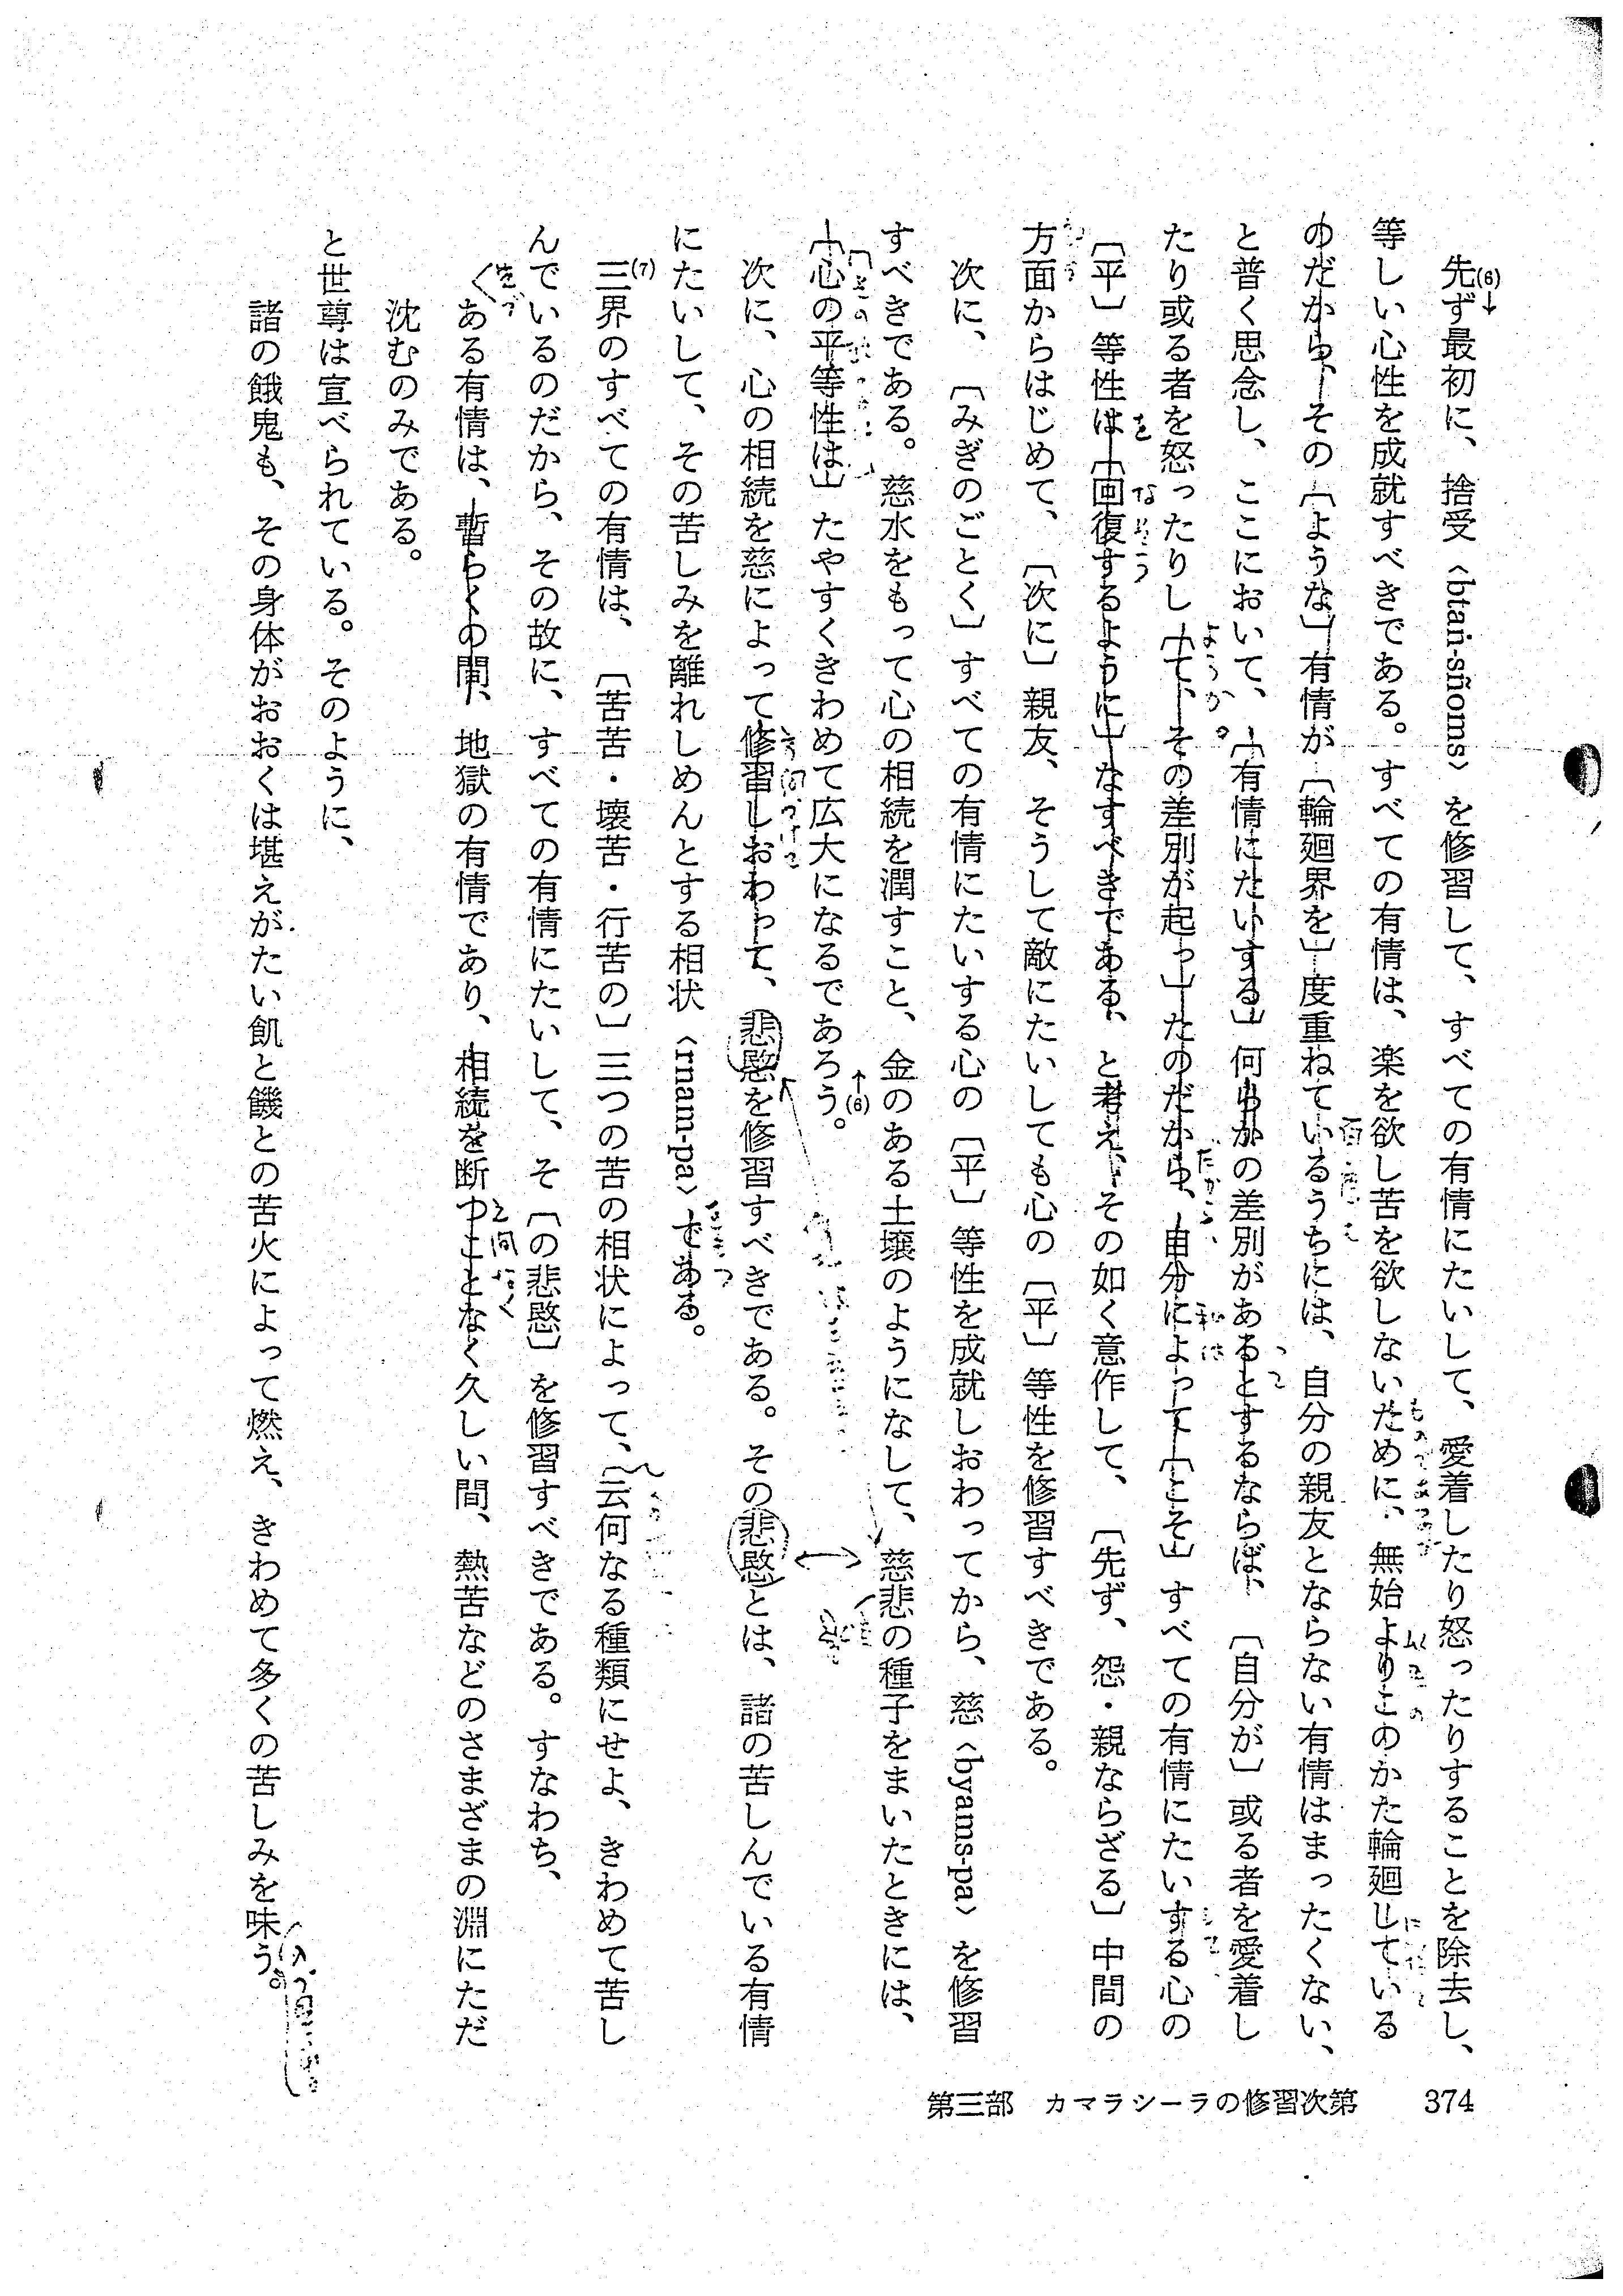 先ず最初に、捨受〈btaṅ-sñoms〉を修習して、すべての有情にたいして、愛着したり怒ったりすることを除去し、
(6)↓
等しい心性を成就すべきである。すべての有情は、楽を欲し苦を欲しないために、無始よりこのかた輪廻している
のだから、その〔ような〕有情が〔輪廻界を〕度重ねているうちには、自分の親友とならない有情はまったくない、
と普く思念し、ここにおいて、〔有情にたいする〕何らかの差別があるとするならば、〔自分が〕或る者を愛着し
たり或る者を怒ったりし〔て、その差別が起っ〕たのだから、自分によって〔こそ〕すべての有情にたいする心の
ようか。
だから、
私は
〔平〕等性は〔回復するように〕なすべきである、と考え、その如く意作して、〔先ず、怨・親ならざる〕中間の
を
なおそう
方面からはじめて、〔次に〕親友、そうして敵にたいしても心の〔平〕等性を修習すべきである。
次に、〔みぎのごとく〕すべての有情にたいする心の〔平〕等性を成就しおわってから、慈〈byams-pa〉を修習
すべきである。慈水をもって心の相続を潤すこと、金のある土壌のようになして、慈悲の種子をまいたときには、
〔心の平等性は〕たやすくきわめて広大になるであろう。
↑(6)
次に、心の相続を慈によって修習しおわって、悲愍を修習すべきである。その悲愍とは、諸の苦しんでいる有情
にたいして、その苦しみを離れしめんとする相状〈rnam-pa〉である。
三界のすべての有情は、〔苦苦・壊苦・行苦の〕三つの苦の相状によって、〔云何なる種類にせよ、きわめて苦し
(7)
んでいるのだから、その故に、すべての有情にたいして、そ〔の悲愍〕を修習すべきである。すなわち、
ある有情は、暫らくの間、地獄の有情であり、相続を断つことなく久しい間、熱苦などのさまざまの淵にただ
先づ
と間なく
沈むのみである。
と世尊は宣べられている。そのように、
諸の餓鬼も、その身体がおおくは堪えがたい飢と饑との苦火によって燃え、きわめて多くの苦しみを味う。
第三部 カマラシーラの修習次第 374